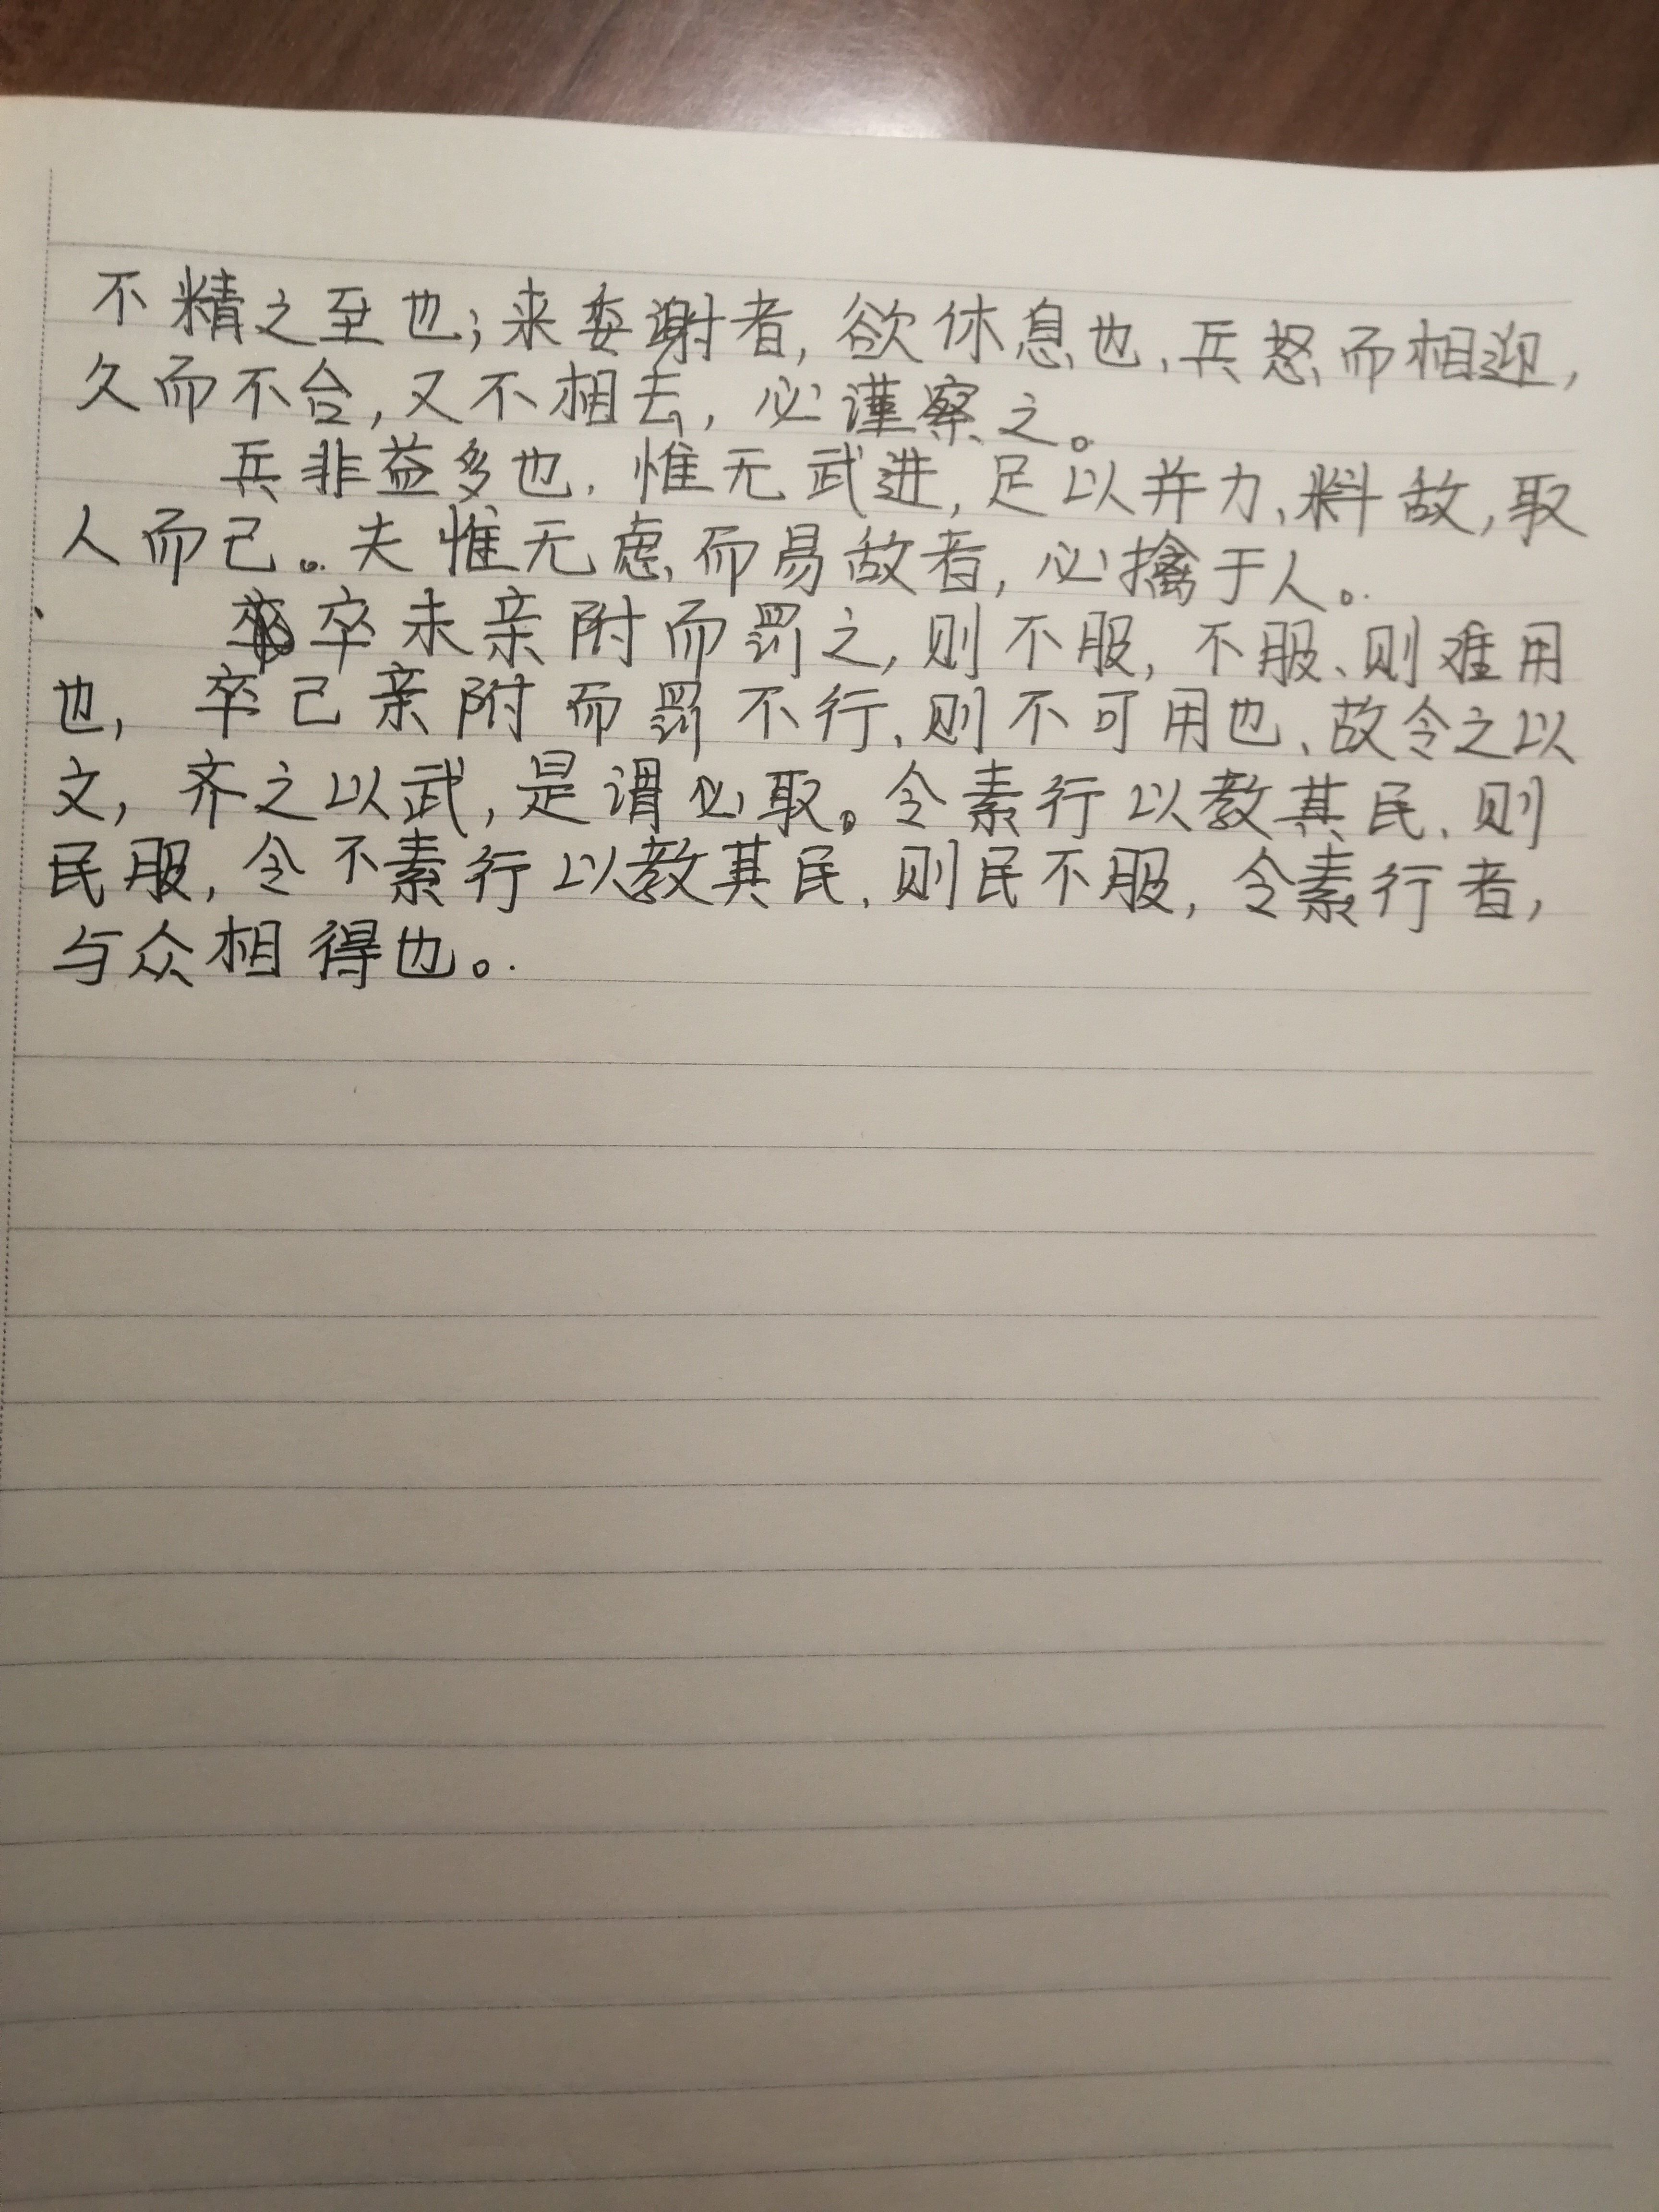 不精之至也；来委谢者，欲休息也．兵怒而相迎，
久而不合，又不相去，必谨察之。
兵非益多也．惟无武进，足以并力、料敌，取
人而己。夫惟无虑而易敌者，必擒于人。
卒未亲附而罚之，则不服，不服、则难用
也，卒己亲附而罚不行，则不可用也、故令之以
文，齐之以武，是谓必取。令素行以教其民．则
民服，令不素行以教其民．则民不服，令素行者，
与众相得也。